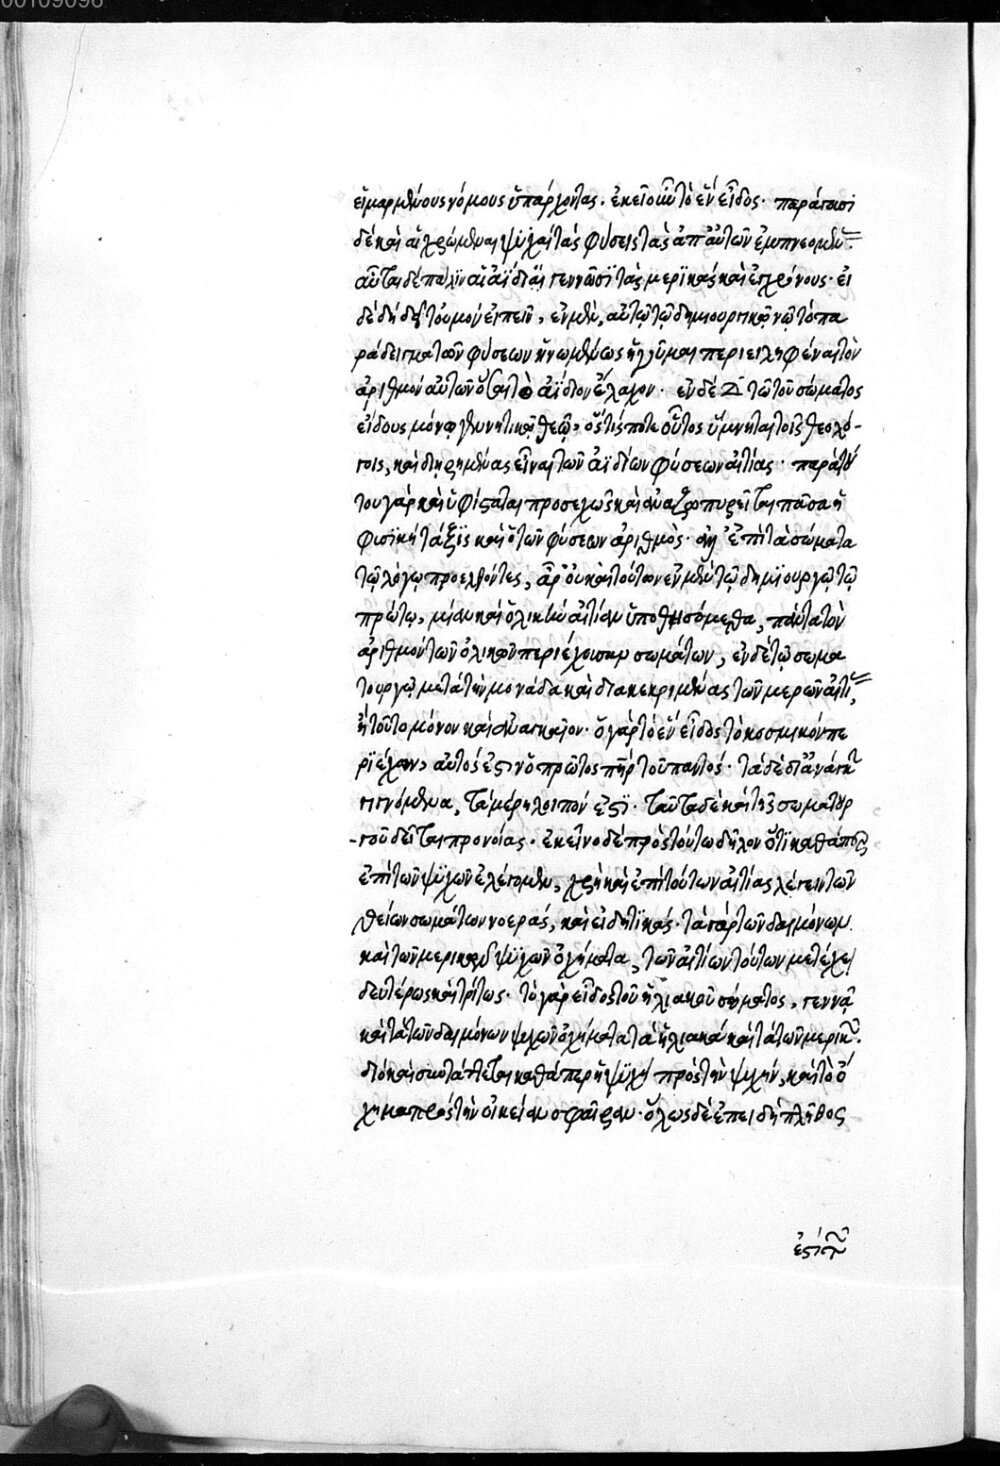 00109096
εἱμαρμένους νόμους ὑπάρχοντας. ἐκεῖ οὖν τὸ ἓν εἶδος. παράγουσι
δὲ καὶ αἱ χρώμεναι ψυχαὶ τὰς φύσεις τὰς ἀπ' αὐτῶν ἐμπνεομένας.
αὗται δὲ πάλιν αἱ ἀΐδιαι γεννῶσι τὰς μερικὰς καὶ ἐγχρόνους. εἰ
δὲ δὴ δεῖ τοὐμὸν εἰπεῖν, ἐν μὲν αὐτῷ τῷ δημιουργικῷ νῷ τὸ πα
ράδειγμα τῶν φύσεων ἡνωμένως ἡγοῦμαι περιειληφέναι τὸν
ἀριθμὸν αὐτῶν ὅσαι τὸ ἀΐδιον ἔλαχον. ἐν δὲ τῷ τοῦ σώματος
εἴδους μόνῳ γεννητικῷ θεῷ, ὅστις ποτε οὗτος ὕμνηται τοῖς θεολό-
γοις, καὶ διῃρημένας εἶναι τῶν ἀϊδίων φύσεων αἰτίας. παρὰ τού
του γὰρ καὶ ὑφίσταται προσεχῶς καὶ ἀναζωπυρεῖται πᾶσα ἡ
φυσικὴ τάξις καὶ ὁ τῶν φύσεων ἀριθμός. ἐπὶ τὰ σώματα
τῷ λόγῳ προελθόντες, ἆρ' οὐ καὶ τούτων ἐν μὲν τῷ δημιουργῷ τῷ
πρώτῳ, μίαν καὶ ὁλικὴν αἰτίαν ὑποθησόμεθα, πάντα τὸν
ἀριθμὸν τῶν ὁλικῶν περιέχουσαν σωμάτων, ἐν δὲ τῷ σωμα
τουργῷ μετὰ τὴν μονάδα καὶ διακεκριμένας τῶν μερῶν αἰτίας,
ἢ τοῦτο μόνον καὶ ἀναγκαῖον. ὁ γὰρ τὸ ἓν εἶδος τὸ κοσμικὸν πε
ριέχων, αὐτός ἐστιν ὁ πρῶτος πατὴρ τοῦ παντός. τὰ δὲ δι' ἀνάγκην
γιγνόμενα, τὰ μέρη λοιπόν ἐστι. ταῦτα δὲ καὶ τῆς σωματουρ
-γοῦ δεῖται προνοίας. ἐκεῖνο δὲ πρὸς τούτῳ δῆλον ὅτι καθάπερ
ἐπὶ τῶν ψυχῶν ἐλέγομεν, χρὴ καὶ ἐπὶ τούτων αἰτίας λέγειν τῶν
θείων σωμάτων νοεράς, καὶ εἰδητικάς. τὰ γὰρ τῶν δαιμόνων
καὶ τῶν μερικῶν ψυχῶν ὀχήματα, τῶν αἰτίων τούτων μετέχει
δευτέρως καὶ τρίτως. τὸ γὰρ εἶδος τοῦ ἡλιακοῦ σώματος, γεννᾷ
καὶ τὰ τῶν δαιμόνων ψυχῶν ὀχήματα τὰ ἡλιακὰ καὶ τὰ τῶν μερικῶν.
διὸ καὶ συντάττεται καθάπερ ἡ ψυχὴ πρὸς τὴν ψυχήν, καὶ τὸ ὄ
χημα πρὸς τὴν οἰκείαν σφαῖραν. ὅλως δὲ ἐπειδὴ πλῆθος